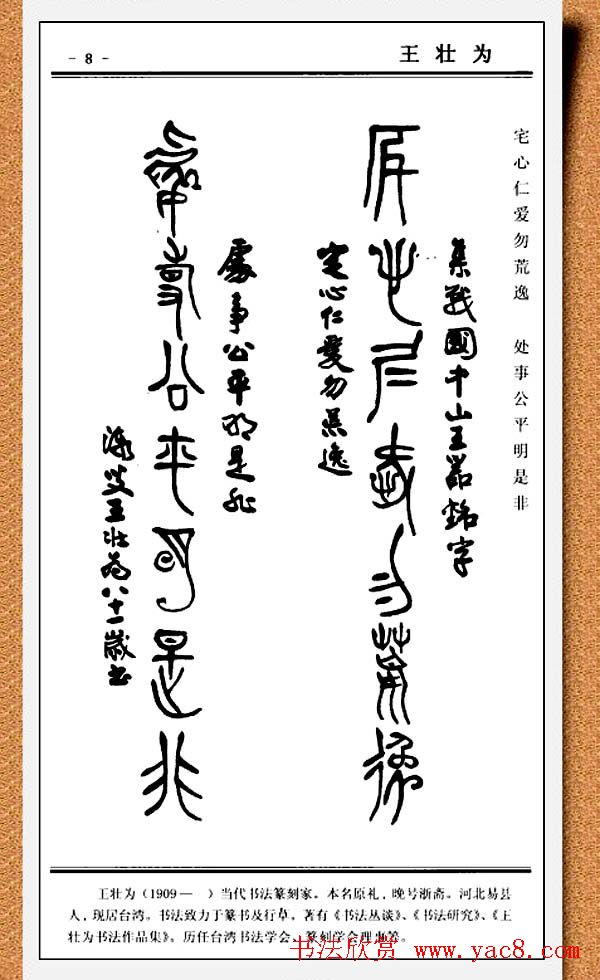 - 8 -
王壮为
宅心仁爱勿荒逸 处事公平明是非
集戰國中山王器銘字
宅心仁愛勿荒逸
宅心仁愛勿荒逸
處事公平明是非
處事公平明是非
王壯為八十一歲書
王壮为(1909— )当代书法篆刻家。本名原礼,晚号浙斋。河北易县
人,现居台湾。书法致力于篆书及行草。著有《书法丛谈》、《书法研究》、《王
壮为书法作品集》。历任台湾书法学会、篆刻学会理事等。
书法欣赏 www.yac8.com